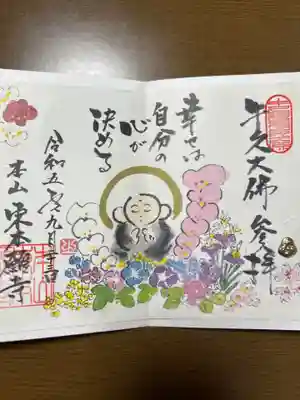 牛久大佛 参拝
幸せは
自分の
心が
決める
令和五年九月吉日
本山 東本願寺